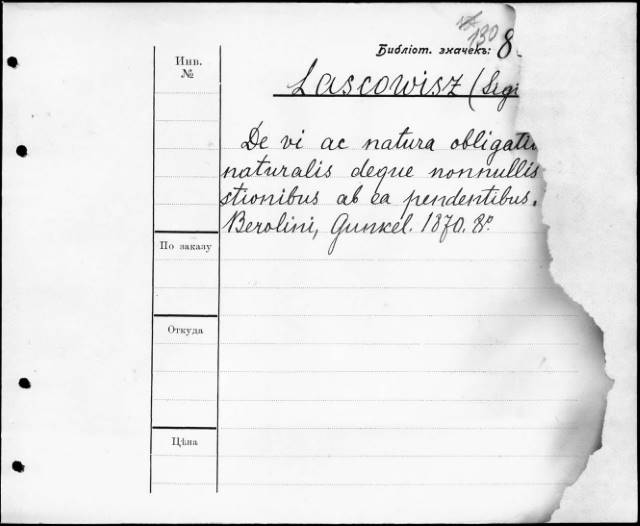 130
Библіот. значекъ: 8
Инв.
№
Lascowisz (Sigi
De vi ac natura obligati
naturalis deque nonnullis
stionibus ab ea pendentibus.
Berolini, Gunkel. 1870. 8º.
По заказу
Откуда
Цѣна